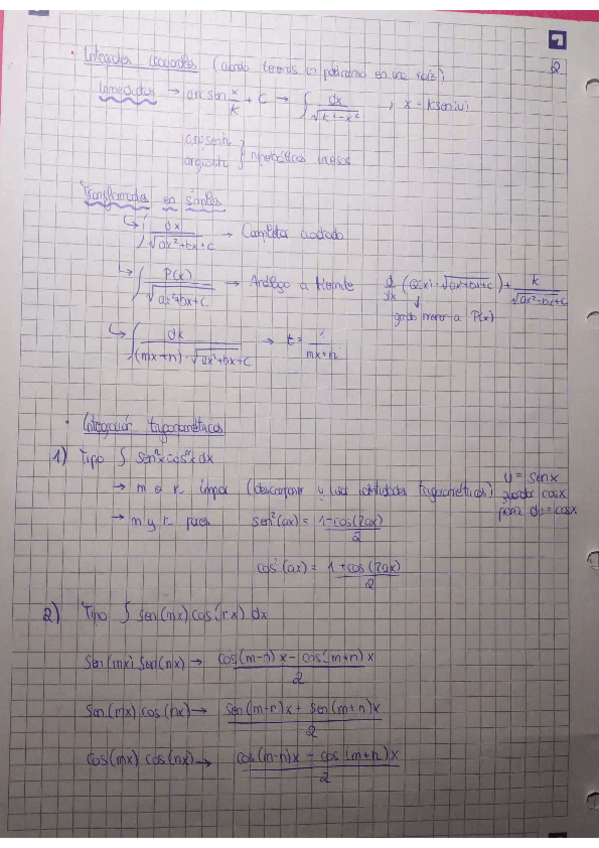 2
· Integrales irracionales (cuando tenemos un polinomio en una raíz)
Inmediatas → arcsen x/k + C → ∫ dx/√(k²-x²) , x = k sen(u)
arcsenh
hiperbólicas
Transformadas en simples
↳ ∫ dx/√(ax²+bx+c) → Completar cuadrado
↳ ∫ P(x)/√(ax²+bx+c) → Análogo a Hermite d/dx (Q(x)·√(ax²+bx+c)) + k/√(ax²+bx+c)
grado menor a P(x)
↳ ∫ dx/((mx+n)·√(ax²+bx+c)) → t = 1/(mx+n)
· Integración trigonométricas
1) Tipo ∫ senᵐx cosⁿx dx
→ m o n impar (descomponer y usar identidades trigonométricas) u = senx
guardar cosx
para du = cosx
→ m y n pares sen²(ax) = (1-cos(2ax))/2
cos²(ax) = (1+cos(2ax))/2
2) Tipo ∫ sen(mx) cos(nx) dx
Sen(mx) Sen(nx) → (cos(m-n)x - cos(m+n)x)/2
Sen(mx) cos(nx) → (sen(m-n)x + sen(m+n)x)/2
Cos(mx) cos(nx) → (cos(m-n)x - cos(m+n)x)/2